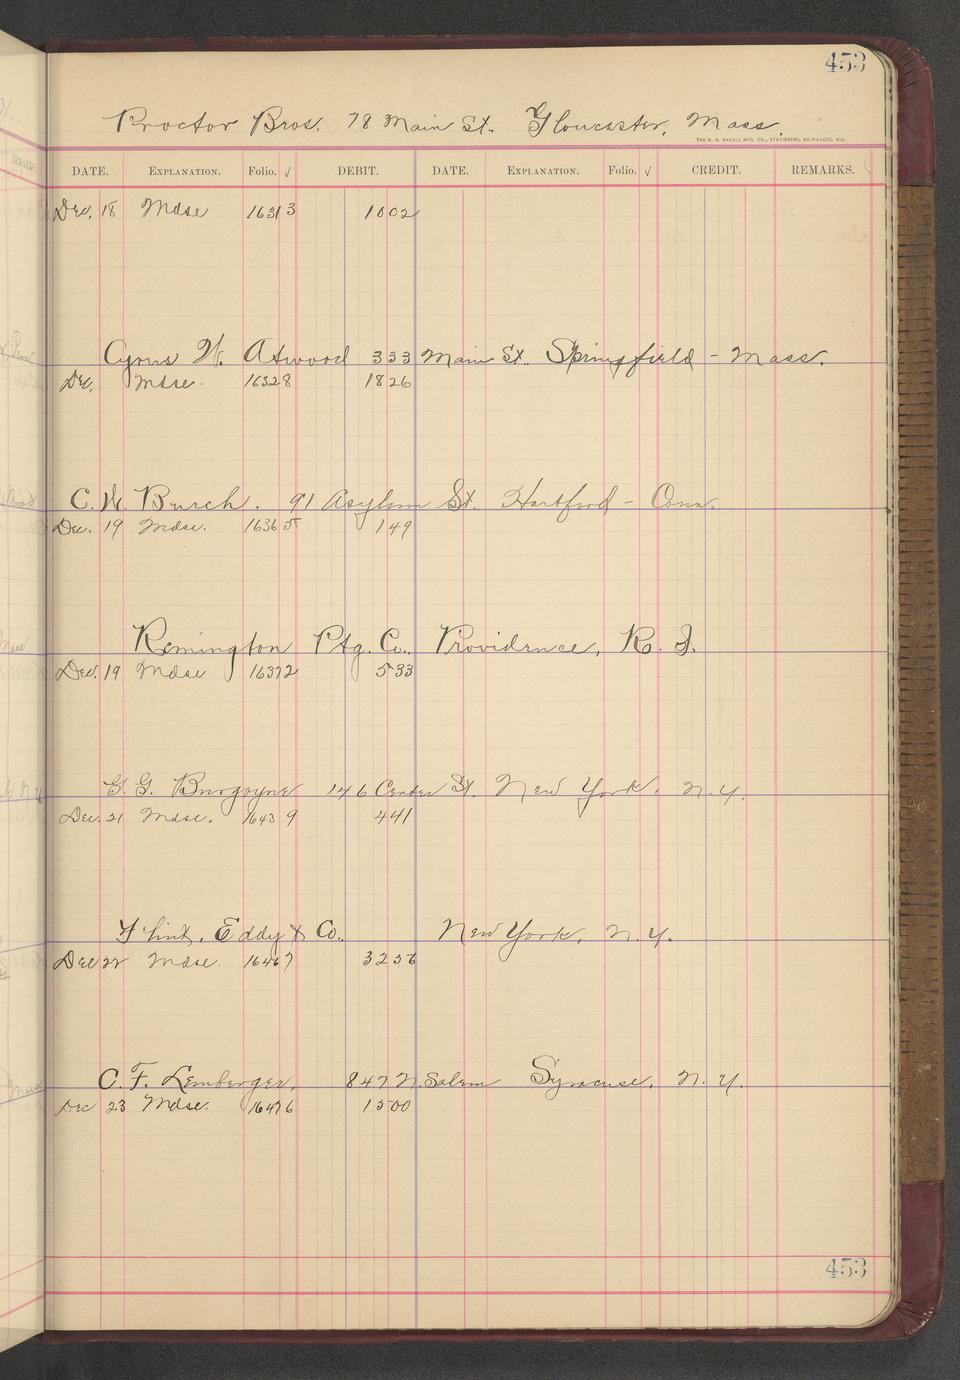 453
Proctor Bros. 78 Main St. Gloucester, Mass.
THE H. G. RAZALL MFG. CO., STATIONERS, MILWAUKEE, WIS.
DATE. EXPLANATION. Folio. √ DEBIT. DATE. EXPLANATION. Folio. √ CREDIT. REMARKS.
Dec. 18 Mdse 16313 1002
Cyrus W. Atwood 333 Main St. Springfield - Mass.
Dec. Mdse. 16328 1826
C. W. Burch. 91 Asylum St. Hartford - Conn.
Dec. 19 Mdse. 16365 149
Remington Ptg. Co. Providence, R. I.
Dec. 19 Mdse 16372 533
G. G. Burgoyne 146 Center St. New York. N.Y.
Dec. 21 Mdse. 16439 441
Flint, Eddy & Co. New York, N.Y.
Dec 22 Mdse. 16467 3256
C. F. Lemberger, 847 N. Salem Syracuse, N.Y.
Dec 23 Mdse. 16476 1500
453